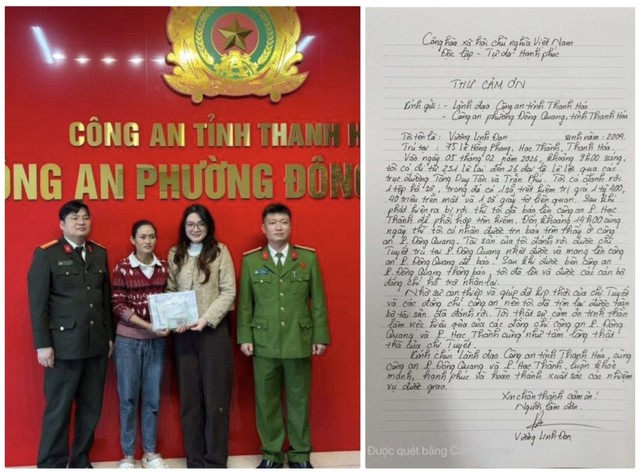 CÔNG AN TỈNH THANH H
ÔNG AN PHƯỜNG ĐÔNG
Cộng hòa xã hội chủ nghĩa Việt Nam
Độc lập - Tự do - Hạnh phúc
THƯ CẢM ƠN
Kính gửi: - Lãnh đạo Công an tỉnh Thanh Hóa
- Công an phường Đông Quang, tỉnh Thanh Hóa
Tôi tên là: Vương Linh Đan sinh năm: 2004.
Trú tại: 75 Lê Hồng Phong, Hạc Thành, Thanh Hóa.
Vào ngày 05 tháng 02 năm 2026, khoảng 9h00 sáng,
tôi có đi từ 231 Lê Lai đến 26 đại lộ Lê Lợi qua các
trục đường Tống Duy Tân và Trần Phú. Tôi có đánh rơi
1 tệp hồ sơ, trong đó có 1 sổ tiết kiệm trị giá 1 tỷ 400,
40 triệu tiền mặt và 1 số giấy tờ liên quan. Sau khi
phát hiện ra bị rơi thì tôi đã báo lên công an P. Hạc
Thành để phối hợp tìm kiếm. Đến khoảng 14h00 cùng
ngày thì tôi có nhận được tin báo tìm thấy ở công
an P. Đông Quang. Tài sản của tôi đánh rơi được chị
Tuyết trú tại P. Đông Quang nhặt được và mang lên công
an P. Đông Quang để báo. Sau khi được bên công an
P. Đông Quang thông báo, tôi đã lên và được các cán bộ
đồng chí hỗ trợ nhận lại.
Nhờ sự can thiệp và giúp đỡ kịp thời của chị Tuyết
và các đồng chí công an nên tôi đã tìm lại được toàn
bộ tài sản đã đánh rơi. Tôi thật sự cảm ơn tinh thần
làm việc hiệu quả của các đồng chí công an P. Đông
Quang và P. Hạc Thành cũng như tấm lòng thật
thà của chị Tuyết.
Kính chúc Lãnh đạo Công an tỉnh Thanh Hóa, cùng
công an P. Đông Quang và P. Hạc Thành, luôn khỏe
mạnh, hạnh phúc và hoàn thành xuất sắc các nhiệm
vụ được giao.
Xin chân thành cảm ơn!
Người làm đơn.
Vương Linh Đan
Được quét bằng Ca